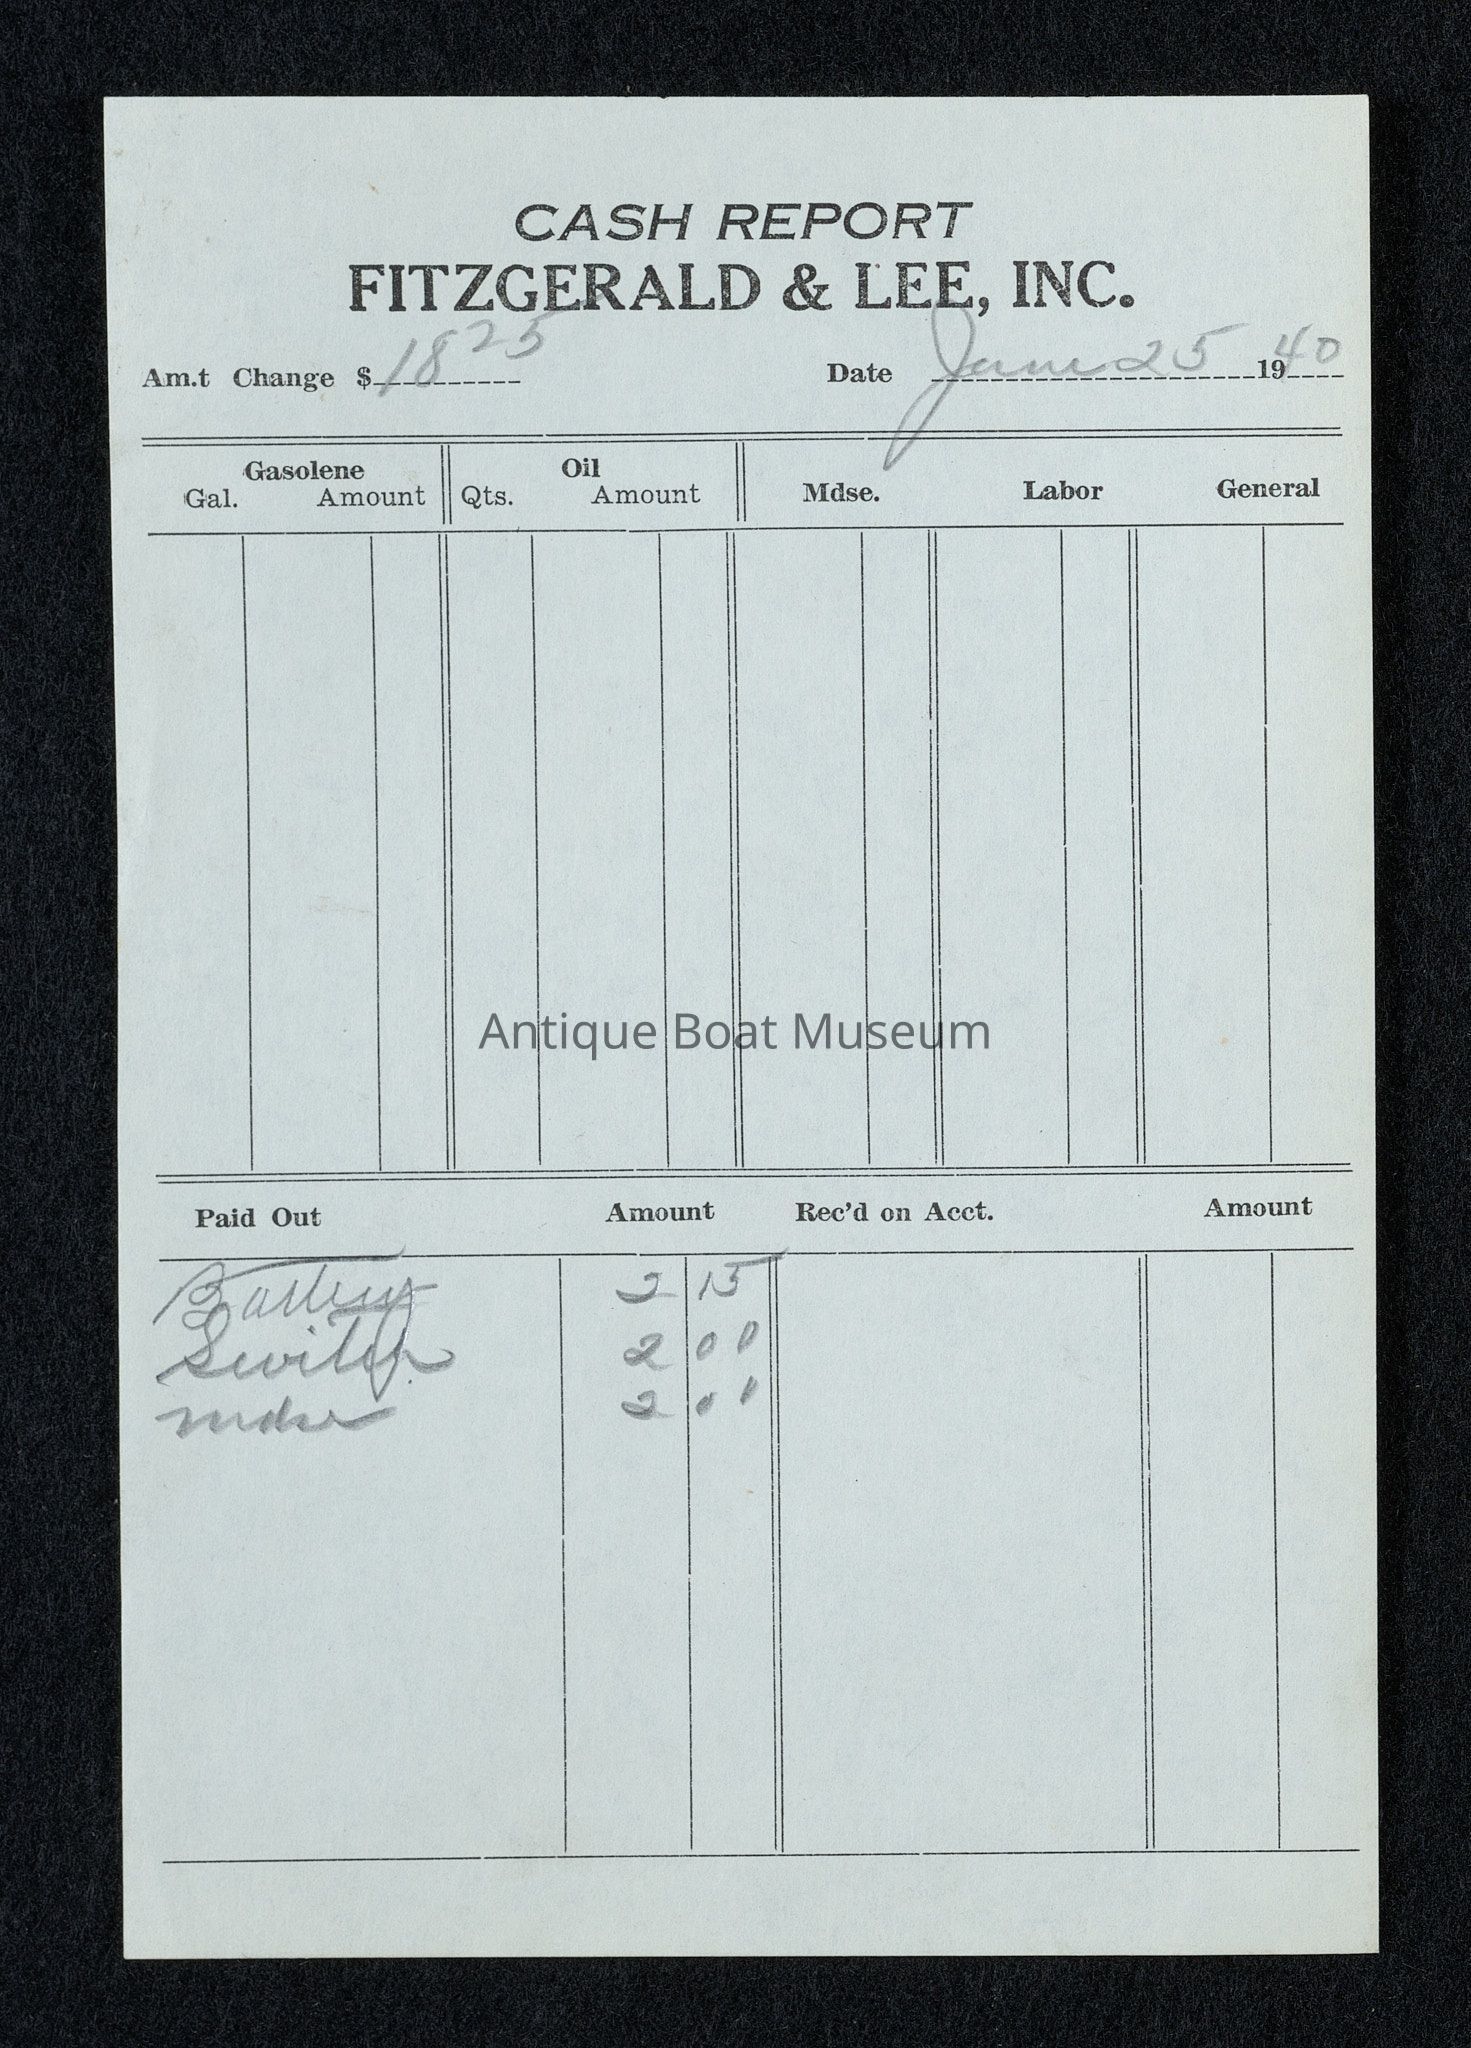 CASH REPORT
FITZGERALD & LEE, INC.
Am.t Change $ 18 25 Date Jan 25 1940
Gasolene Oil
Gal. Amount Qts. Amount Mdse. Labor General
Antique Boat Museum
Paid Out Amount Rec'd on Acct. Amount
Battery 2 15
Switch 2 00
mdse 2 00